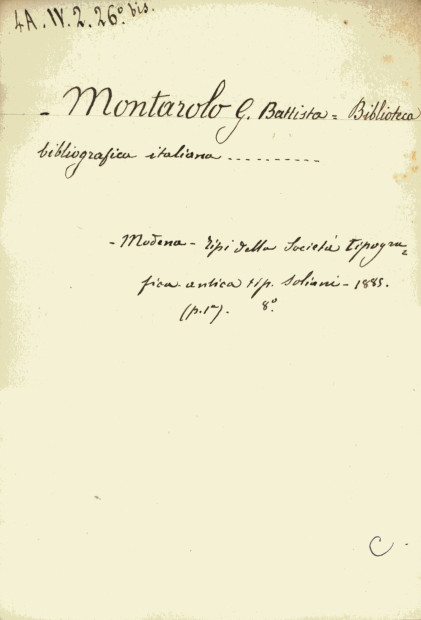 4A.IV.2.26º bis.
- Montarolo G. Battista = Biblioteca
bibliografica italiana ..........
- Modena - Tipi della Società Tipogra=
fica antica tip. Soliani - 1885.
(p.1ª). 8º.
C.